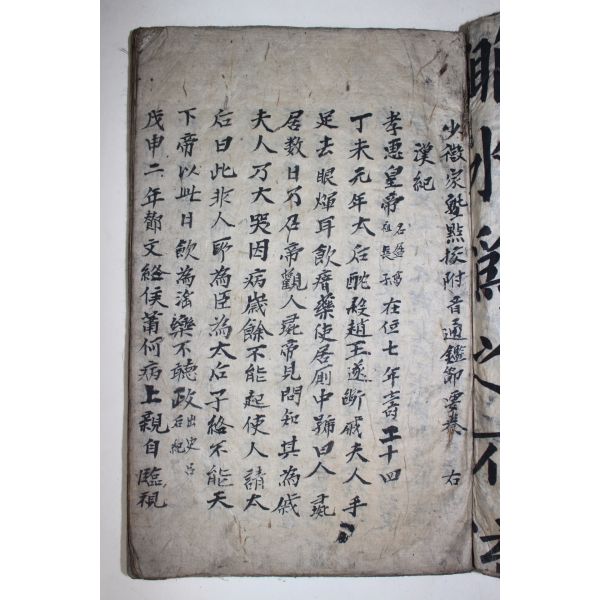 少微家塾點校附音通鑑節要卷 右
漢紀
孝惠皇帝 名盈高在長子 在位七年壽二十四
丁未元年太后酖殺趙王遂斷戚夫人手
足去眼煇耳飲瘖藥使居厠中號曰人彘
居数日乃召帝觀人彘帝見問知其為戚
夫人乃大哭因病歲餘不能起使人請太
后曰此非人所為臣為太后子終不能天
下帝以此日飲為滛樂不聽政 出史呂后紀
戊申二年酇文終侯蕭何病上親自臨視